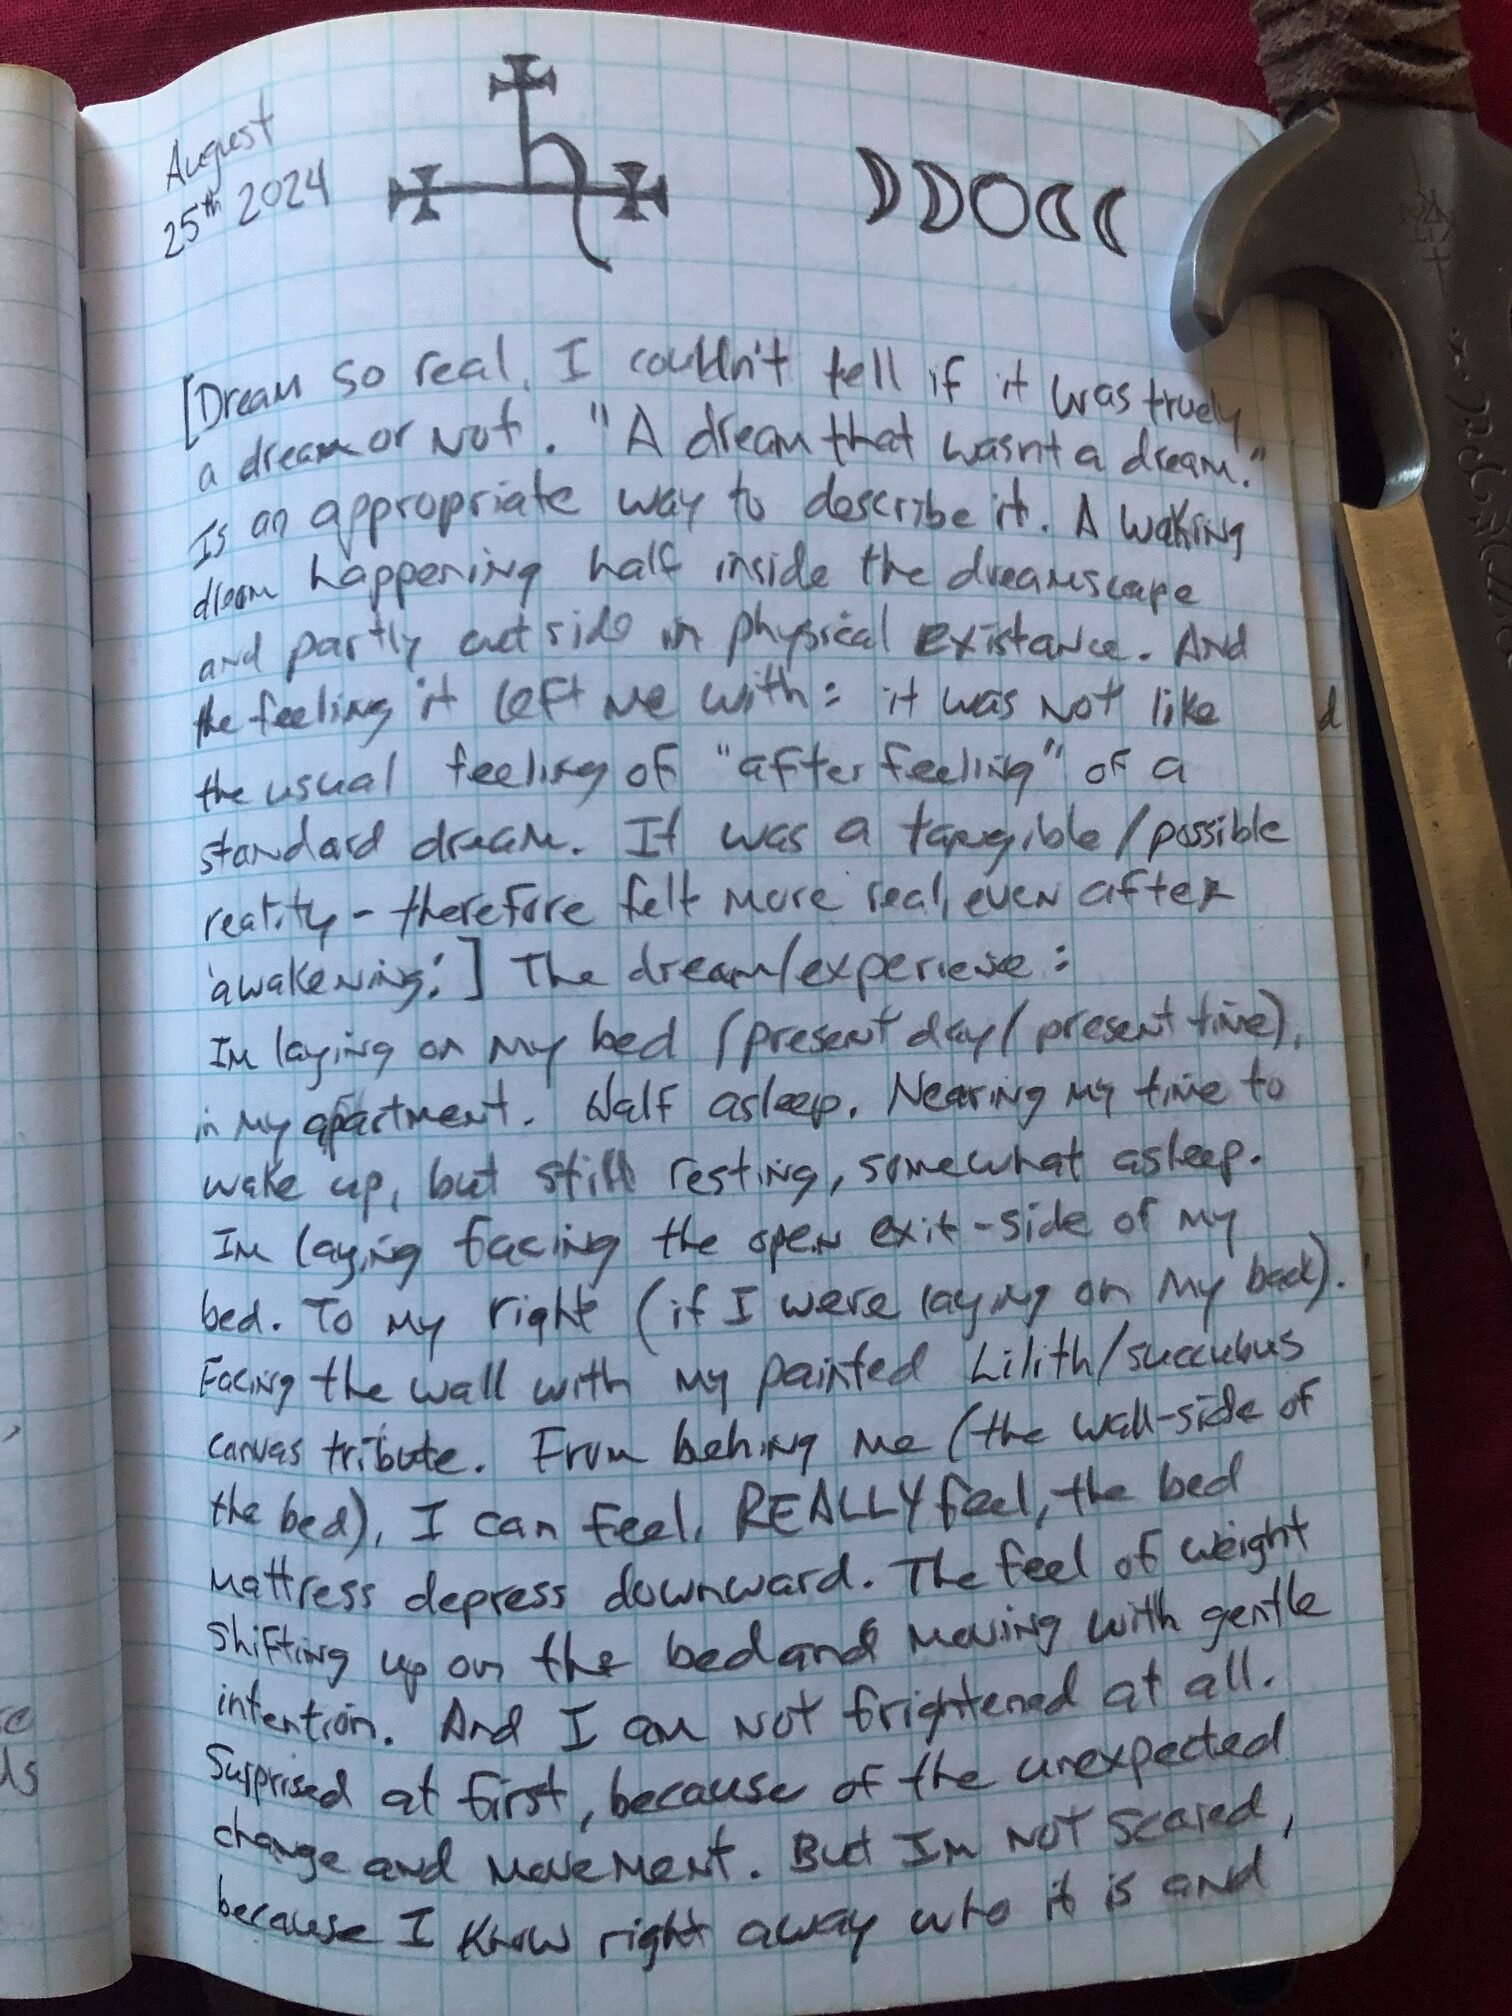 August
25th 2024
[Dream so real, I couldn't tell if it was truely
a dream or not. "A dream that wasnt a dream."
Is an appropriate way to describe it. A waking
dream happening half inside the dreamscape
and partly outside in physical existance. And
the feeling it left me with: it was not like
the usual feeling of "after feeling" of a
standard dream. It was a tangible/possible
reality - therefore felt more real, even after
'awakening.'] The dream/experiense:
Im laying on my bed (present day/present time),
in my apartment. Half asleep. Nearing my time to
wake up, but still resting, somewhat asleep.
Im laying facing the open exit-side of my
bed. To my right (if I were laying on my back).
Facing the wall with my painted Lilith/succubus
canvas tribute. From behing me (the wall-side of
the bed), I can feel, REALLY feel, the bed
mattress depress downward. The feel of weight
shifting up on the bed and moving with gentle
intention. And I am not frightened at all.
Surprised at first, because of the unexpected
change and movement. But Im not scared,
because I know right away who it is and
d